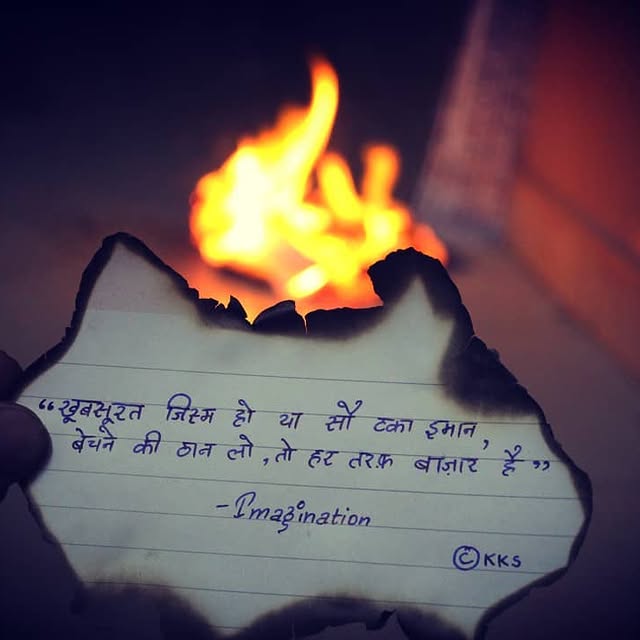 “खूबसूरत जिस्म हो या सौ टका इमान,
बेचने की ठान लो, तो हर तरफ़ बाज़ार है”
-Imagination
©KKS